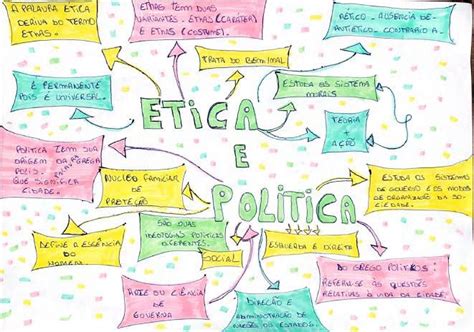 A PALAURA ETICA
DERIVA DO TERMO
ETHOS.
ETHOS TEM DUAS
VARIANTES. ETHOS (CARATER)
E ETHOS (COSTUME).
AÉTICO - AUSENCIA DE
ANTIÉTICO - CONTRARIO A.
TRATA DO BEM/MAL
ESTUDA OS SISTEMA
MORAIS
É PERMANENTE
POIS É UNIVERSAL.
ETICA
E
POLITICA
TEORIA
+
AÇÃO
POLITICA TEM SUA
ORIGEM DA
GREGA
POLIS
QUE SIGNIFICA
CIDADE.
NUCLEO FAMILIAR
DE
PROTEÇÃO
ESTUDA OS SISTEMAS
DE GOVERNO E OS MODOS
DE ORGANIZAÇÃO DA SO-
CIEDADE.
SÃO DUAS
IDEOLOGIAS POLITICAS
ESQUERDA E DIREITA
DEFINE A ESSÊNCIA
DO
HOMEM.
SOCIAL
DO GREGO POLITIKOS:
REFERIU-SE ÀS QUESTÕES
RELATIVAS À VIDA DA CIDADE.
ARTE OU CIÊNCIA
DE
GOVERNA
DIREÇÃO E
ADMINISTRAÇÃO DE
NAÇÕES OU ESTADOS.